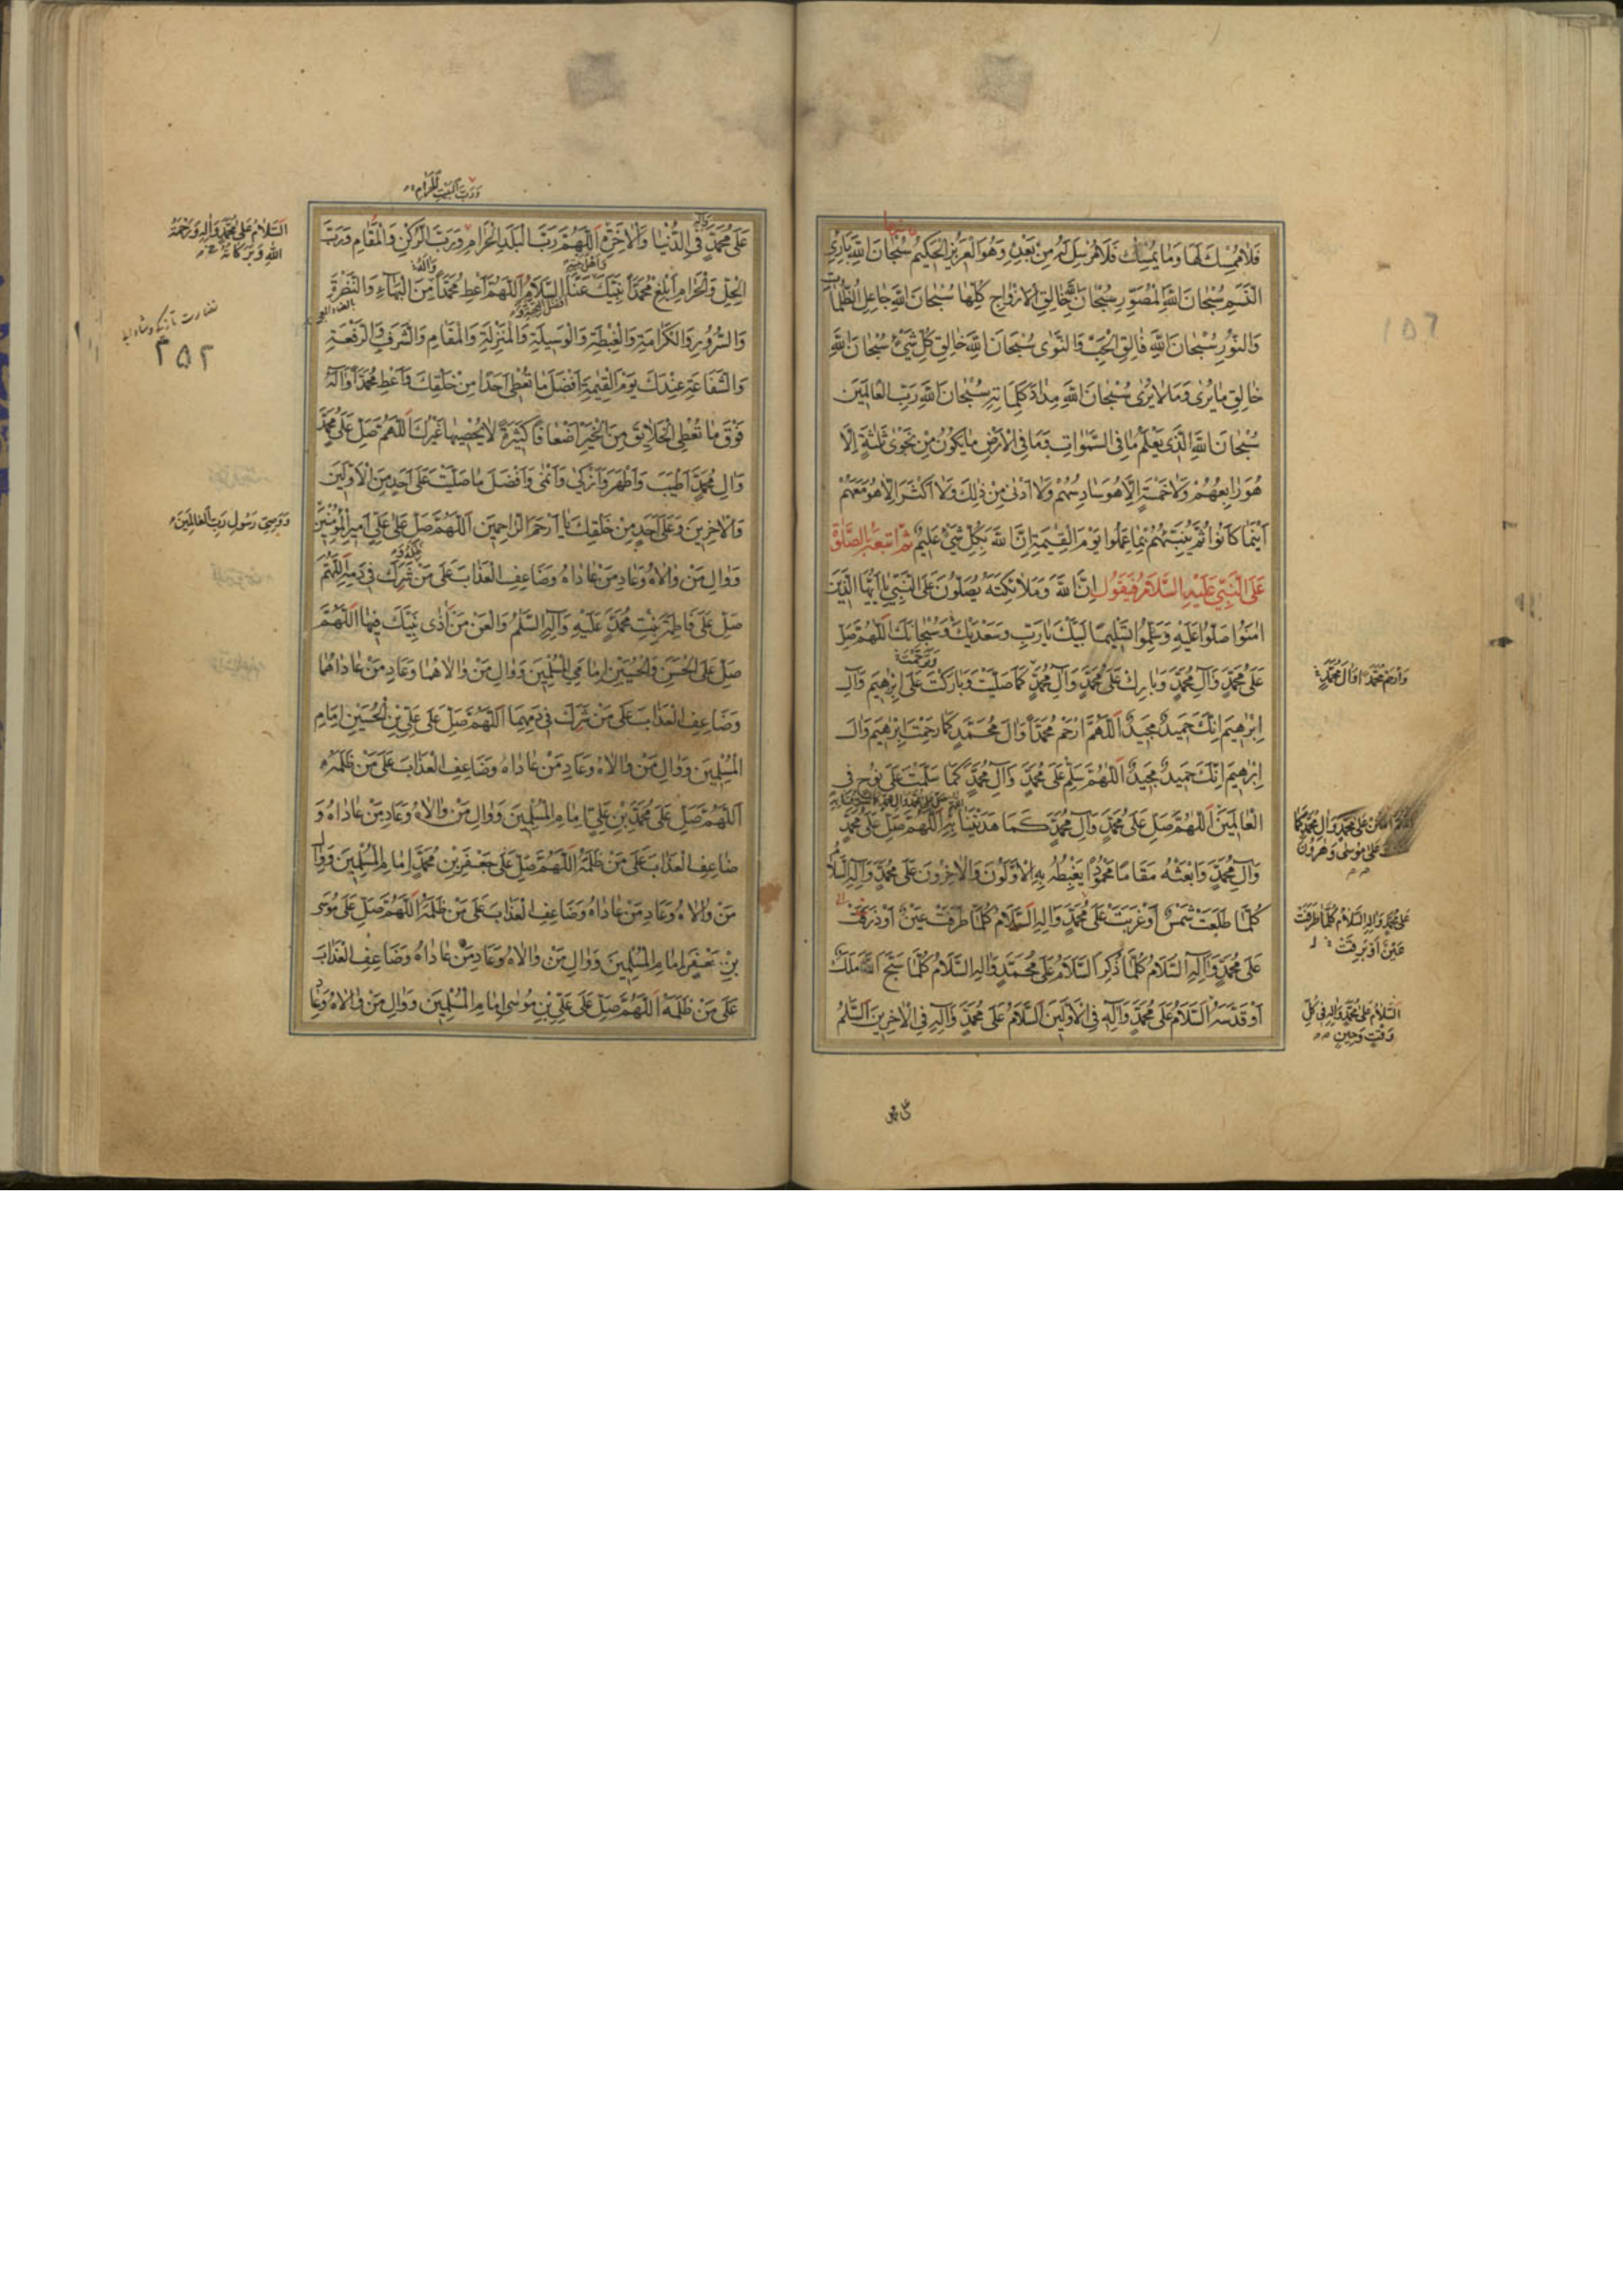 فَلَا مُمْسِكَ لَهَا وَمَا يُمْسِكْ فَلَا مُرْسِلَ لَهُ مِنْ بَعْدِهِ وَهُوَ الْعَزِيزُ الْحَكِيمُ سُبْحَانَ اللهِ بَارِئِ
النَّسَمِ سُبْحَانَ اللهِ الْمُصَوِّرِ سُبْحَانَ اللهِ خَالِقِ الْأَزْوَاجِ كُلِّهَا سُبْحَانَ اللهِ جَاعِلِ الظُّلُمَاتِ
وَالنُّورِ سُبْحَانَ اللهِ فَالِقِ الْحَبِّ وَالنَّوٰى سُبْحَانَ اللهِ خَالِقِ كُلِّ شَيْءٍ سُبْحَانَ اللهِ
خَالِقِ مَا يُرٰى وَمَا لَا يُرٰى سُبْحَانَ اللهِ مِدَادَ كَلِمَاتِهِ سُبْحَانَ اللهِ رَبِّ الْعَالَمِينَ
سُبْحَانَ اللهِ الَّذِي يَعْلَمُ مَا فِي السَّمٰوَاتِ وَمَا فِي الْأَرْضِ مَا يَكُونُ مِنْ نَجْوٰى ثَلٰثَةٍ إِلَّا
هُوَ رَابِعُهُمْ وَلَا خَمْسَةٍ إِلَّا هُوَ سَادِسُهُمْ وَلَا أَدْنٰى مِنْ ذٰلِكَ وَلَا أَكْثَرَ إِلَّا هُوَ مَعَهُمْ
أَيْنَمَا كَانُوا ثُمَّ يُنَبِّئُهُمْ بِمَا عَمِلُوا يَوْمَ الْقِيٰمَةِ إِنَّ اللهَ بِكُلِّ شَيْءٍ عَلِيمٌ ثُمَّ اتْبَعْهُ بِالصَّلٰوةِ
عَلَى النَّبِيِّ عَلَيْهِ السَّلَامُ فَيَقُولُ إِنَّ اللهَ وَمَلَائِكَتَهُ يُصَلُّونَ عَلَى النَّبِيِّ يَا أَيُّهَا الَّذِينَ
اٰمَنُوا صَلُّوا عَلَيْهِ وَسَلِّمُوا تَسْلِيمًا لَبَّيْكَ يَا رَبِّ وَسَعْدَيْكَ وَسُبْحَانَكَ اللّٰهُمَّ صَلِّ
عَلَى مُحَمَّدٍ وَآلِ مُحَمَّدٍ وَبَارِكْ عَلَى مُحَمَّدٍ وَآلِ مُحَمَّدٍ كَمَا صَلَّيْتَ وَبَارَكْتَ عَلَى إِبْرٰهِيمَ وَآلِ
إِبْرٰهِيمَ إِنَّكَ حَمِيدٌ مَجِيدٌ اَللّٰهُمَّ ارْحَمْ مُحَمَّدًا وَآلَ مُحَمَّدٍ كَمَا رَحِمْتَ إِبْرٰهِيمَ وَآلَ
إِبْرٰهِيمَ إِنَّكَ حَمِيدٌ مَجِيدٌ اَللّٰهُمَّ سَلِّمْ عَلَى مُحَمَّدٍ وَآلِ مُحَمَّدٍ كَمَا سَلَّمْتَ عَلَى نُوحٍ فِي
الْعَالَمِينَ اَللّٰهُمَّ صَلِّ عَلَى مُحَمَّدٍ وَآلِ مُحَمَّدٍ كَمَا هَدَيْتَنَا بِهِ اَللّٰهُمَّ صَلِّ عَلَى مُحَمَّدٍ
وَآلِ مُحَمَّدٍ وَابْعَثْهُ مَقَامًا مَحْمُودًا يَغْبِطُهُ بِهِ الْأَوَّلُونَ وَالْاٰخِرُونَ عَلَى مُحَمَّدٍ وَآلِهِ السَّلَامُ
كُلَّمَا طَلَعَتْ شَمْسٌ أَوْ غَرَبَتْ عَلَى مُحَمَّدٍ وَآلِهِ السَّلَامُ كُلَّمَا طَرَفَتْ عَيْنٌ أَوْ ذَرَفَتْ
عَلَى مُحَمَّدٍ وَآلِهِ السَّلَامُ كُلَّمَا ذُكِرَ السَّلَامُ عَلَى مُحَمَّدٍ وَآلِهِ السَّلَامُ كُلَّمَا سَبَّحَ اللهَ مَلَكٌ
أَوْ قَدَّسَهُ السَّلَامُ عَلَى مُحَمَّدٍ وَآلِهِ فِي الْأَوَّلِينَ اَلسَّلَامُ عَلَى مُحَمَّدٍ وَآلِهِ فِي الْاٰخِرِينَ اَلسَّلَامُ
وَتَرَحَّمْتَ
وَارْحَمْ مُحَمَّدًا وَآلَ مُحَمَّدٍ
عَلَى مُوسٰى وَهٰرُونَ
عَلَى مُحَمَّدٍ وَآلِهِ السَّلَامُ كُلَّمَا طَرَفَتْ
عَيْنٌ أَوْ بَرِقَتْ
اَلسَّلَامُ عَلَى مُحَمَّدٍ وَآلِهِ فِي كُلِّ
وَقْتٍ وَحِينٍ
وَرَبَّ الْبَيْتِ الْحَرَامِ
عَلَى مُحَمَّدٍ فِي الدُّنْيَا وَالْاٰخِرَةِ اَللّٰهُمَّ رَبَّ الْبَلَدِ الْحَرَامِ وَرَبَّ الرُّكْنِ وَالْمَقَامِ وَرَبَّ
الْحِلِّ وَالْحَرَامِ أَبْلِغْ مُحَمَّدًا نَبِيَّكَ عَنَّا السَّلَامَ اَللّٰهُمَّ أَعْطِ مُحَمَّدًا مِنَ الْبَهَاءِ وَالنَّضْرَةِ
وَالسُّرُورِ وَالْكَرَامَةِ وَالْغِبْطَةِ وَالْوَسِيلَةِ وَالْمَنْزِلَةِ وَالْمَقَامِ وَالشَّرَفِ وَالرِّفْعَةِ
وَالشَّفَاعَةِ عِنْدَكَ يَوْمَ الْقِيٰمَةِ أَفْضَلَ مَا تُعْطِي أَحَدًا مِنْ خَلْقِكَ وَأَعْطِ مُحَمَّدًا وَآلَهُ
فَوْقَ مَا تُعْطِي الْخَلَائِقَ مِنَ الْخَيْرِ أَضْعَافًا كَثِيرَةً لَا يُحْصِيهَا غَيْرُكَ اَللّٰهُمَّ صَلِّ عَلَى مُحَمَّدٍ
وَآلِ مُحَمَّدٍ أَطْيَبَ وَأَطْهَرَ وَأَزْكٰى وَأَنْمٰى وَأَفْضَلَ مَا صَلَّيْتَ عَلَى أَحَدٍ مِنَ الْأَوَّلِينَ
وَالْاٰخِرِينَ وَعَلَى أَحَدٍ مِنْ خَلْقِكَ يَا أَرْحَمَ الرَّاحِمِينَ اَللّٰهُمَّ صَلِّ عَلَى عَلِيٍّ أَمِيرِ الْمُؤْمِنِينَ
وَوَالِ مَنْ وَالَاهُ وَعَادِ مَنْ عَادَاهُ وَضَاعِفِ الْعَذَابَ عَلَى مَنْ شَرِكَ فِي دَمِهِ اَللّٰهُمَّ
صَلِّ عَلَى فَاطِمَةَ بِنْتِ مُحَمَّدٍ عَلَيْهِ وَآلِهِ السَّلَمُ وَالْعَنْ مَنْ آذٰى نَبِيَّكَ فِيهَا اَللّٰهُمَّ
صَلِّ عَلَى الْحَسَنِ وَالْحُسَيْنِ إِمَامَيِ الْمُسْلِمِينَ وَوَالِ مَنْ وَالَاهُمَا وَعَادِ مَنْ عَادَاهُمَا
وَضَاعِفِ الْعَذَابَ عَلَى مَنْ شَرِكَ فِي دَمِهِمَا اَللّٰهُمَّ صَلِّ عَلَى عَلِيِّ بْنِ الْحُسَيْنِ إِمَامِ
الْمُسْلِمِينَ وَوَالِ مَنْ وَالَاهُ وَعَادِ مَنْ عَادَاهُ وَضَاعِفِ الْعَذَابَ عَلَى مَنْ ظَلَمَهُ
اَللّٰهُمَّ صَلِّ عَلَى مُحَمَّدِ بْنِ عَلِيٍّ إِمَامِ الْمُسْلِمِينَ وَوَالِ مَنْ وَالَاهُ وَعَادِ مَنْ عَادَاهُ وَ
ضَاعِفِ الْعَذَابَ عَلَى مَنْ ظَلَمَهُ اَللّٰهُمَّ صَلِّ عَلَى جَعْفَرِ بْنِ مُحَمَّدٍ إِمَامِ الْمُسْلِمِينَ وَوَالِ
مَنْ وَالَاهُ وَعَادِ مَنْ عَادَاهُ وَضَاعِفِ الْعَذَابَ عَلَى مَنْ ظَلَمَهُ اَللّٰهُمَّ صَلِّ عَلَى مُوسَى
بْنِ جَعْفَرٍ إِمَامِ الْمُسْلِمِينَ وَوَالِ مَنْ وَالَاهُ وَعَادِ مَنْ عَادَاهُ وَضَاعِفِ الْعَذَابَ
عَلَى مَنْ ظَلَمَهُ اَللّٰهُمَّ صَلِّ عَلَى عَلِيِّ بْنِ مُوسٰى إِمَامِ الْمُسْلِمِينَ وَوَالِ مَنْ وَالَاهُ وَعَادِ
اَلسَّلَامُ عَلَى مُحَمَّدٍ وَآلِهِ وَرَحْمَةُ
اللهِ وَبَرَكَاتُهُ
٢٥٢
وَوَصِيِّ رَسُولِ رَبِّ الْعَالَمِينَ